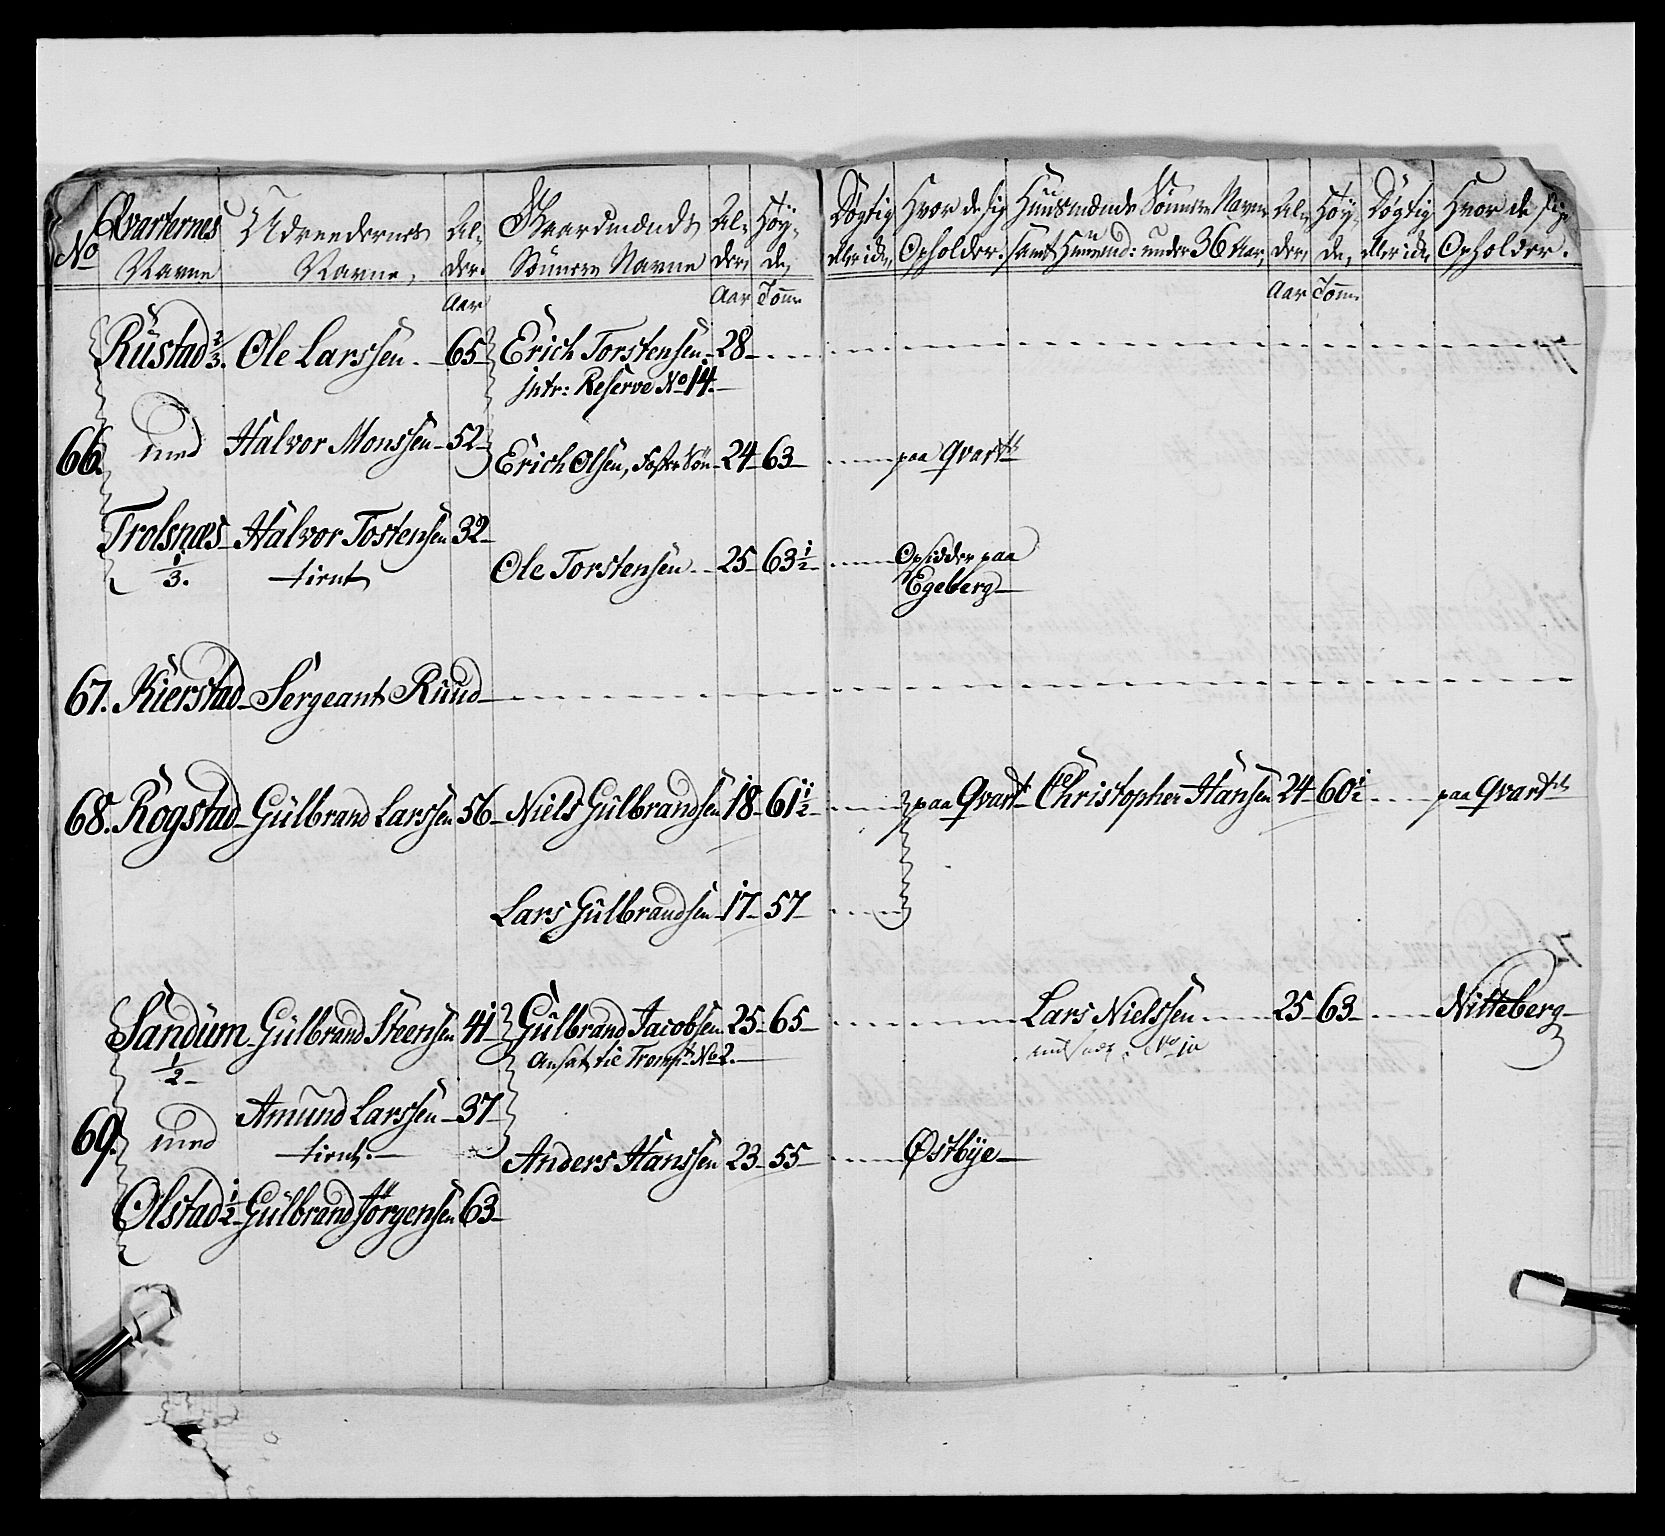 No
Qvarternes Navne
Udreedernes Navne,
Alder. Aar
Gaardmænds Sönners Navne
Alder, Aar
Höyde, Tomr
Dögtig
Hvor de sig Opholder.
Huusmænds Sönners Navne samt Huusmænd: under 36 Aar,
Alder, Aar
Höyde, Tomr
Dögtig
Hvor de sig Opholder.
Rüstad 2/3. Ole Larssen. 65 Erich Torstensen. 28
jntr: Reserve No 14.
66. med Halvor Monssen 52
Erich Olsen, Foster Sön 24 63 paa Qvartt
Trolsnæs 1/3. Halvor Tostensen 32
tient
Ole Torstensen 25 63 1/2 Opsidder paa
Egeberg
67. Kierstad Sergeant Ruud
68. Rogstad Gülbrand Larssen 56 Niels Gülbrandsen 18 61 1/2 paa Qvart Christopher Hansen 24 60 1/2 paa Qvartt
Lars Gülbrandsen 17 57
Sandum 1/2 Gülbrand Steensen 41 Gülbrand Jacobsen 25 65 Lars Nielssen 25 63 Nitteberg
Ansat til Tromp No 2.
69. med Amund Larssen 37
tient.
Anders Hanssen 23 55 Østbye
Olstad 1/2 Gülbrand Jörgensen 63